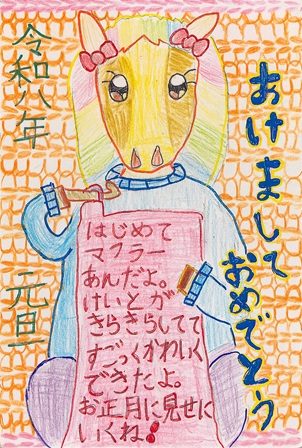 あけまして
おめでとう
令和八年
元旦
はじめて
マフラー
あんだよ。
けいとが
きらきらしてて
すごっくかわいく
できたよ。
お正月に見せに
いくね!